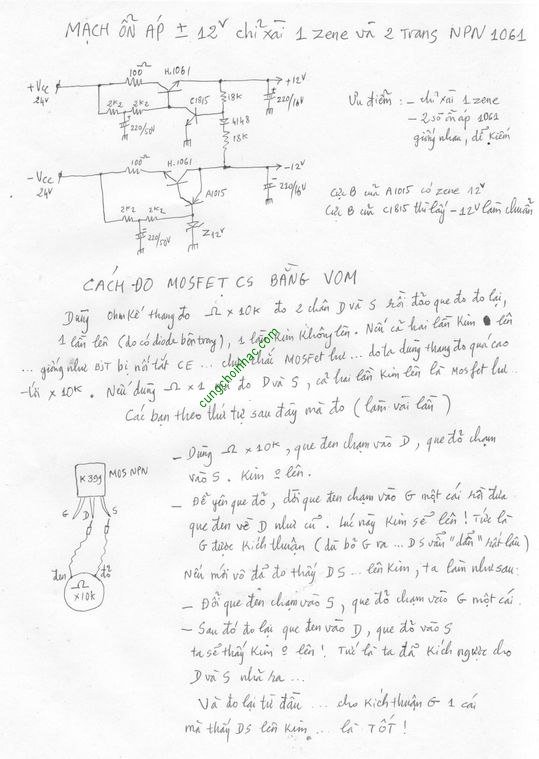 MẠCH ỔN ÁP ± 12V chỉ xài 1 zene và 2 Trans NPN 1061
+Vcc
24V
100Ω
H.1061
+12V
2K2
2K2
C1815
18K
220/50V
4148
18K
220/16V
-Vcc
24V
100Ω
H.1061
-12V
A1015
2K2
2K2
220/50V
Z12V
220/16V
Ưu điểm : - chỉ xài 1 zene
- 2 sò ổn áp 1061
giống nhau, dễ kiếm
Cực B của A1015 có zene 12V
Cực B của C1815 thì lấy -12V làm chuẩn
CÁCH ĐO MOSFET CS BẰNG VOM
Dùng Ohm Kế thang đo Ω x 10K đo 2 chân D và S rồi đảo que đo đo lại,
1 lần lên (do có diode bên trong), 1 lần Kim Không lên. Nếu cả hai lần Kim lên
... giống như BJT bị nối tắt CE ... chưa chắc MOSFet hư ... do ta dùng thang đo quá cao
x 10K. Nếu dùng Ω x 1 đo D và S, cả hai lần Kim lên là Mosfet hư..
cungchoinhac.com
Các bạn theo thứ tự sau đây mà đo (làm vài lần)
- Dùng Ω x 10K, que đen chạm vào D, que đỏ chạm
vào S. Kim o lên.
- Để yên que đỏ, dời que đen chạm vào G một cái rồi đưa
que đen về D như cũ. Lúc này Kim sẽ lên ! Tức là
G được Kích thuận (dù bỏ G ra ... DS vẫn "dẫn" rất lâu)
Nếu mới vô đã đo thấy DS ... lên Kim, ta làm như sau.
- Đổi que đen chạm vào S, que đỏ chạm vào G một cái.
- Sau đó đo lại que đen vào D, que đỏ vào S
ta sẽ thấy Kim o lên ! Tức là ta đã Kích ngược cho
D và S nhả ra ...
Và đo lại từ đầu ... cho Kích thuận G 1 cái
mà thấy DS lên Kim ... là TỐT !
K399
MOS NPN
G
D
S
đen
đỏ
Ω
x10K